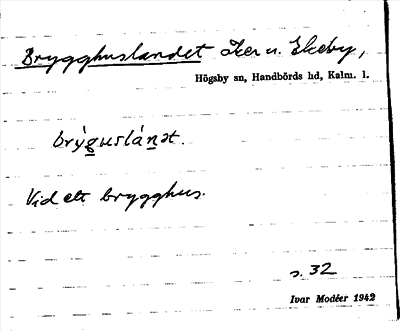 Brygghuslandet åker u. Ekeby,
Högsby sn, Handbörds hd, Kalm. l.
brýguslánət.
Vid ett brygghus.
s. 32
Ivar Modéer 1942